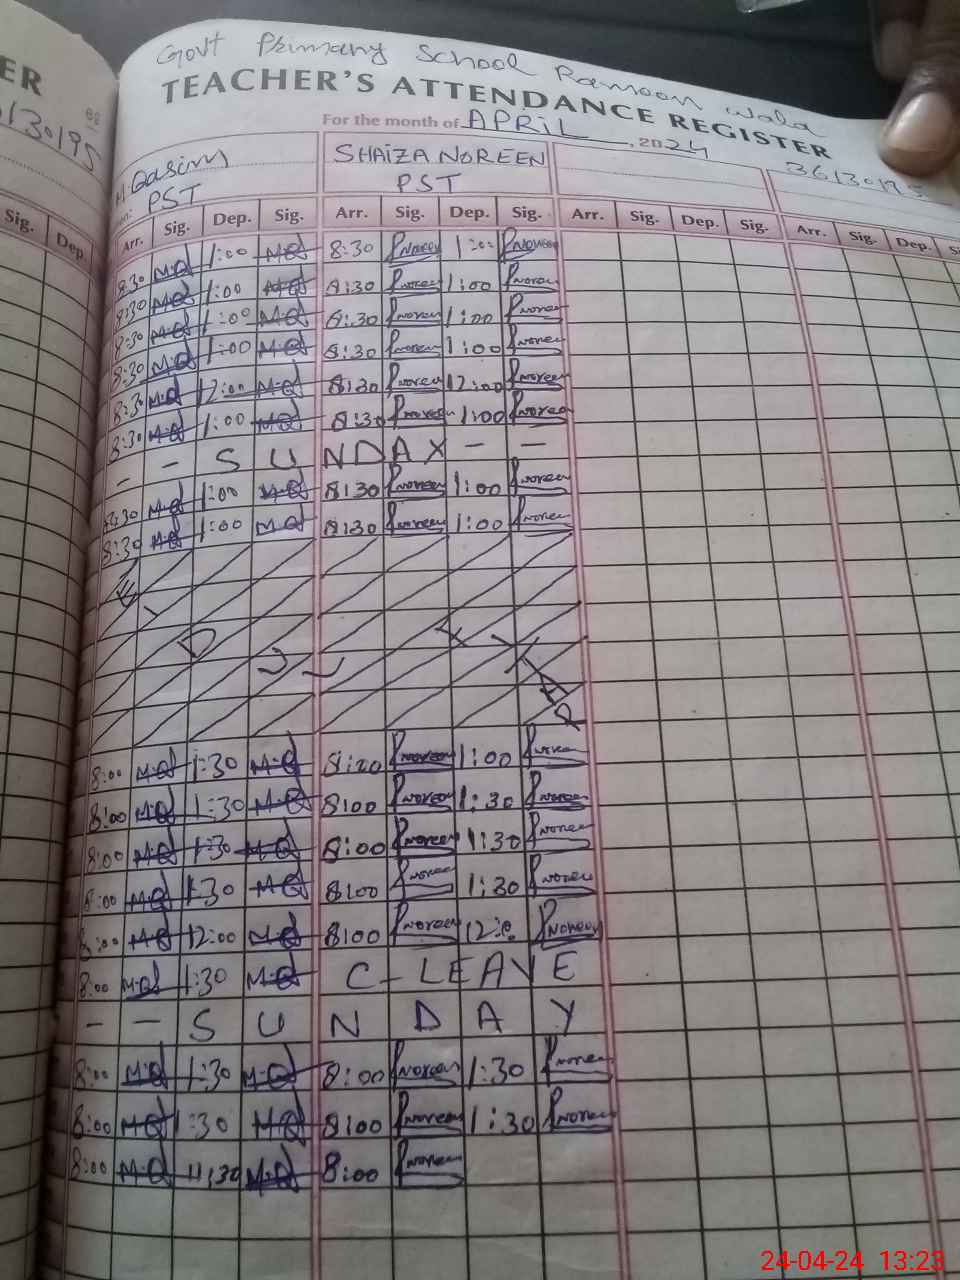 ER
13195
Govt Primary School Ramoon Wala
TEACHER'S ATTENDANCE REGISTER
For the month of APRiL, 2024
36130195
M. Qasim SHAiZA NOREEN
PST PST
Sig. Dep. Arr. Sig. Dep. Sig. Arr. Sig. Dep. Sig. Arr. Sig. Dep. Sig. Arr. Sig. Dep.
8:30 M.Q 1:00 M.Q 8:30 Pnoreen 1:00 Pnoreen
8:30 M.Q 1:00 M.Q 8:30 Pnoreen 1:00 Pnoreen
8:30 M.Q 1:00 M.Q 8:30 Pnoreen 1:00 Pnoreen
8:30 M.Q 1:00 M.Q 8:30 Pnoreen 1:00 Pnoreen
8:30 M.Q 12:00 M.Q 8:30 Pnoreen 12:00 Pnoreen
8:30 M.Q 1:00 M.Q 8:30 Pnoreen 1:00 Pnoreen
- - S U N D A Y - -
8:30 M.Q 1:00 M.Q 8:30 Pnoreen 1:00 Pnoreen
8:30 M.Q 1:00 M.Q 8:30 Pnoreen 1:00 Pnoreen
E I D U L F I T A R
8:00 M.Q 1:30 M.Q 8:00 Pnoreen 1:00 Pnoreen
8:00 M.Q 1:30 M.Q 8:00 Pnoreen 1:30 Pnoreen
8:00 M.Q 1:30 M.Q 8:00 Pnoreen 1:30 Pnoreen
8:00 M.Q 1:30 M.Q 8:00 Pnoreen 1:30 Pnoreen
8:00 M.Q 12:00 M.Q 8:00 Pnoreen 12:00 Pnoreen
8:00 M.Q 1:30 M.Q C-LEAVE
- - S U N D A Y
8:00 M.Q 1:30 M.Q 8:00 Pnoreen 1:30 Pnoreen
8:00 M.Q 1:30 M.Q 8:00 Pnoreen 1:30 Pnoreen
8:00 M.Q 11:30 M.Q 8:00 Pnoreen
24-04-24 13:23